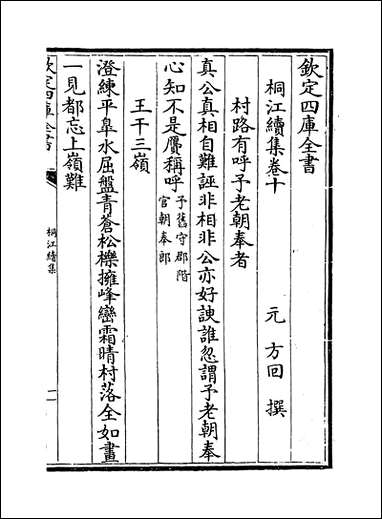 欽定四庫全書
桐江續集卷十
元 方回 撰
村路有呼予老朝奉者
真公真相自難誣非相非公亦好諛誰忽謂予老朝奉
心知不是贋稱呼予舊守郡階官朝奉郎
王干三嶺
澄練平臯水屈盤青蒼松櫟擁峰巒霜晴村落全如畫
一見都忘上嶺難
欽定四庫全書
桐江續集
一